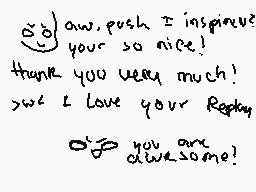 aw. pushk I inspired?
your so nice!
thank you very much!
>we I Love your Replay
you are
awesome!